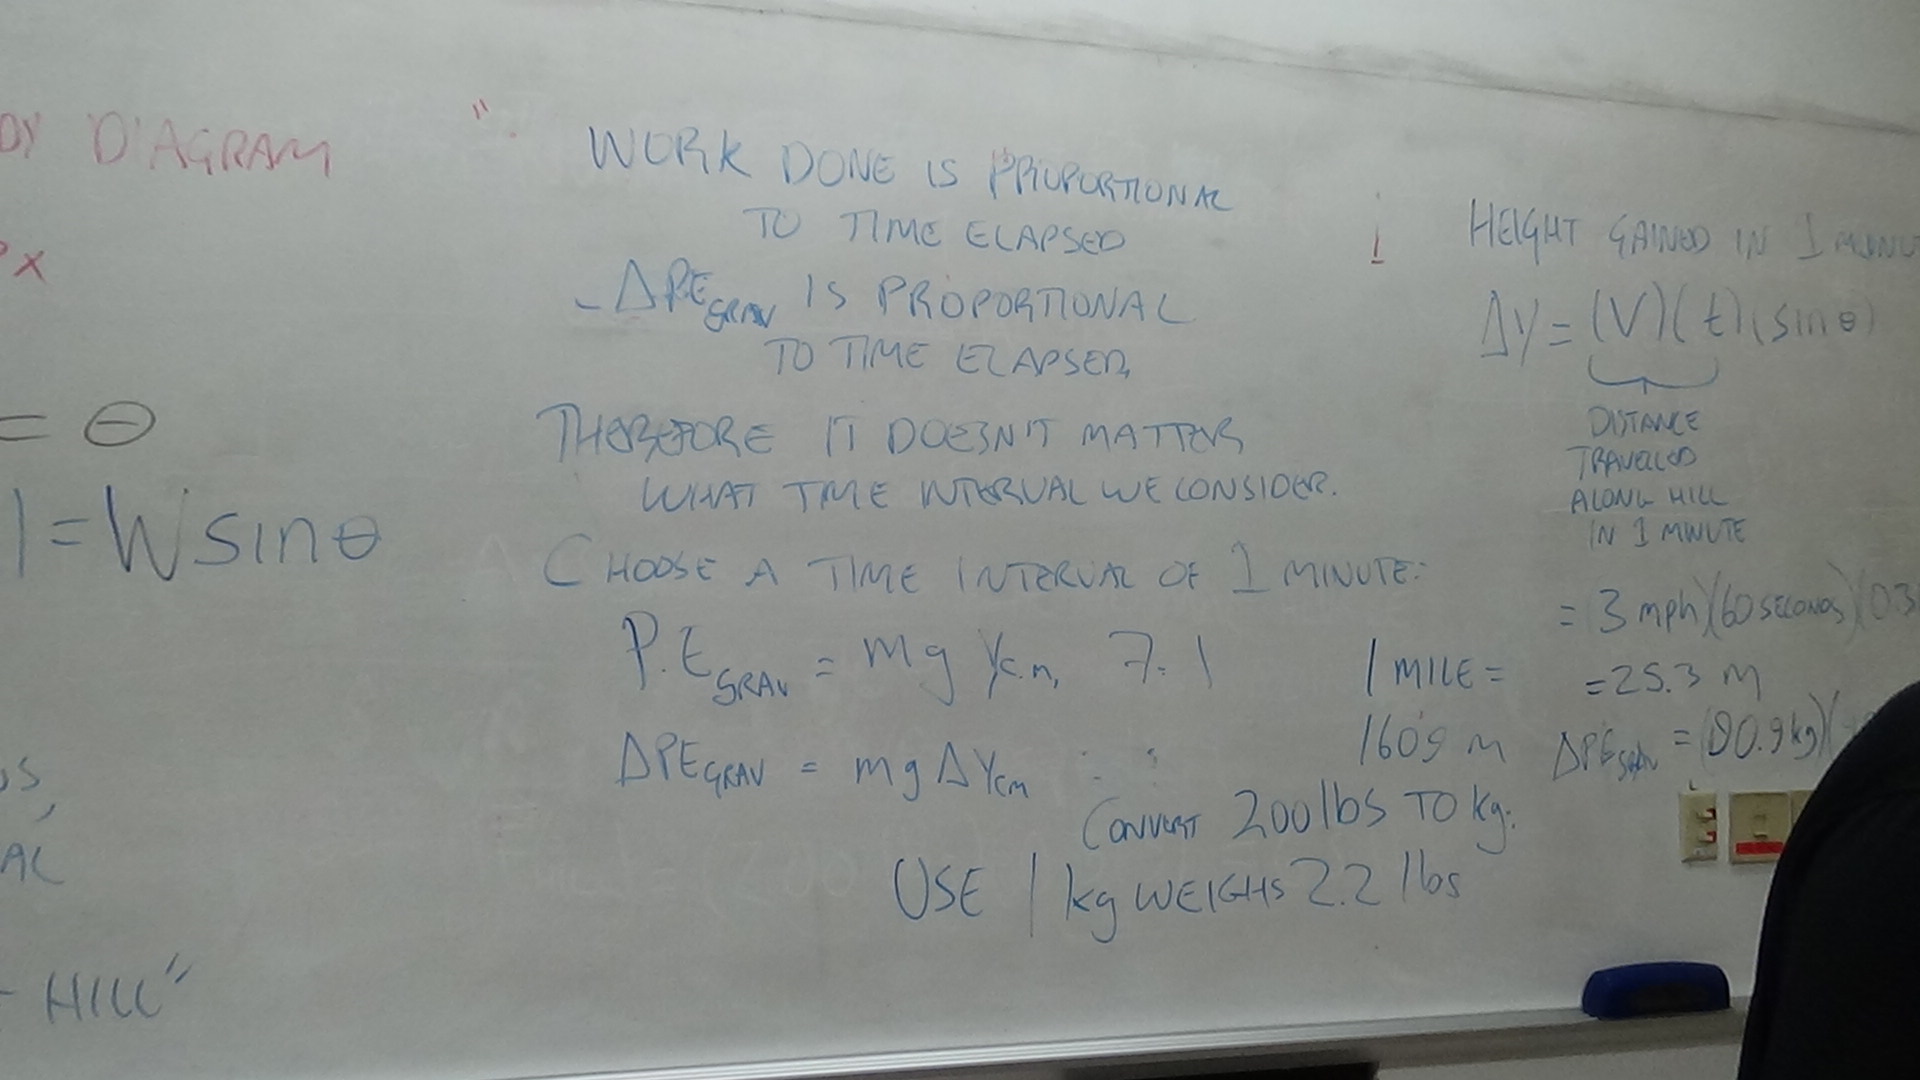 DY DIAGRAM
X
= θ
1 = W sin θ
AL
HILL"
WORK DONE IS PROPORTIONAL
TO TIME ELAPSED
- ΔPE GRAV IS PROPORTIONAL
TO TIME ELAPSED,
THEREFORE IT DOESN'T MATTER
WHAT TIME INTERVAL WE CONSIDER.
CHOOSE A TIME INTERVAL OF 1 MINUTE:
P.E GRAV = mg Yc.m, 7.1
ΔPE GRAV = mg ΔYcm
1 MILE =
1609 m
CONVERT 200 lbs TO kg.
USE 1 kg WEIGHS 2.2 lbs
HEIGHT GAINED IN 1 MINUT
ΔY = (V)(t)(sin θ)
DISTANCE
TRAVELLED
ALONG HILL
IN 1 MINUTE
= 3 mph)(60 SECONDS)(0.3
= 25.3 m
ΔPE GRAV = (90.9 kg)(